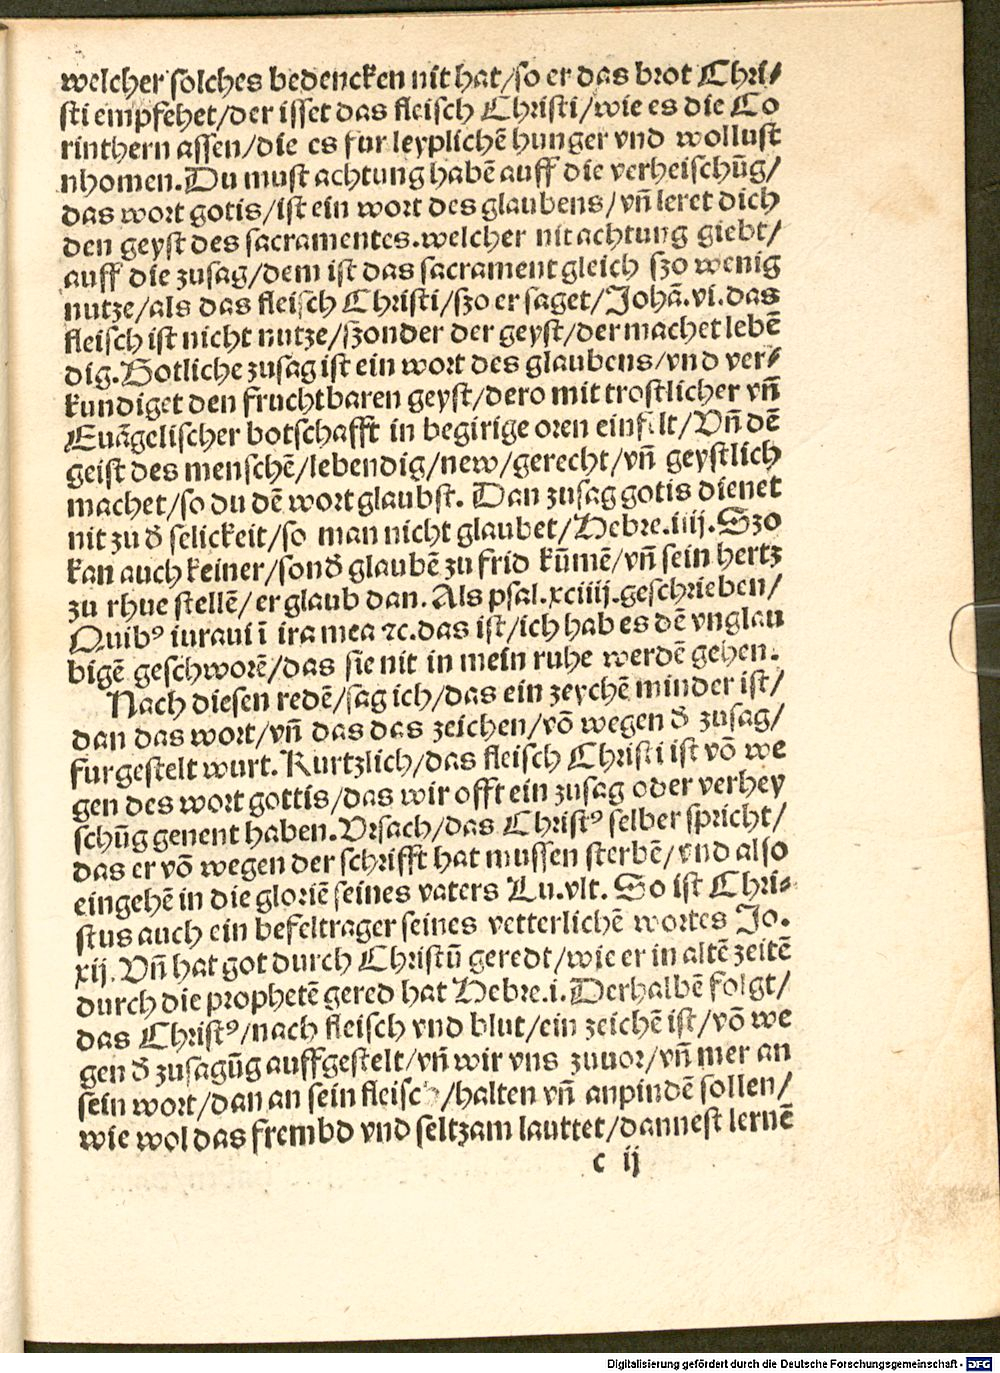 welcher solches bedencken nit hat/so er das brot Chri⸗
sti empfehet/der isset das fleisch Christi/wie es die Co
rinthern assen/die es fur leyplichē hunger vnd wollust
nhomen.Du must achtung habē auff die verheischūg/
das wort gotis/ist ein wort des glaubens/vn̄ leret dich
den geyst des sacramentes.welcher nit achtung giebt/
auff die zusag/dem ist das sacrament gleich szo wenig
nutze/als das fleisch Christi/szo er saget/Johā.vi.das
fleisch ist nicht nutze/szonder der geyst/der machet lebē
dig.Gotliche zusag ist ein wort des glaubens/vnd ver⸗
kundiget den fruchtbaren geyst/dero mit trostlicher vn̄
Euāgelischer botschafft in begirige oren einfelt/Vn̄ dē
geist des menschē/lebendig/new/gerecht/vn̄ geystlich
machet/so du dē wort glaubst. Dan zusag gotis dienet
nit zu d̄ selickeit/so man nicht glaubet/Hebre.iiij.Szo
kan auch keiner/sond̄ glaubē zu frid kūmē/vn̄ sein hertz
zu rhue stellē/er glaub dan.Als psal.xciiij.geschrieben/
Quibꝰ iuraui ī ira mea ⁊c.das ist/ich hab es dē vnglau
bigē geschworē/das sie nit in mein ruhe werdē gehen.
Nach diesen redē/sag ich/das ein zeychē minder ist/
dan das wort/vn̄ das das zeichen/vō wegen d̄ zusag/
furgestelt wurt.Kurtzlich/das fleisch Christi ist vō we
gen des wort gottis/das wir offt ein zusag oder verhey
schūg genent haben.Vrsach/das Christꝰ selber spricht/
das er vō wegen der schrifft hat mussen sterbē/vnd also
eingehē in die gloriē seines vaters Lu.vlt. So ist Chri⸗
stus auch ein befeltrager seines vetterlichē wortes Jo.
xij.Vn̄ hat got durch Christū geredt/wie er in altē zeitē
durch die prophetē gered hat Hebre.i.Derhalbē folgt/
das Christꝰ/nach fleisch vnd blut/ein zeichē ist/vō we
gen d̄ zusagūg auffgestelt/vn̄ wir vns zuuor/vn̄ mer an
sein wort/dan an sein fleisch/halten vn̄ anpindē sollen/
wie wol das frembd vnd seltzam lauttet/dannest lernē
c ij
Digitalisierung gefördert durch die Deutsche Forschungsgemeinschaft - DFG